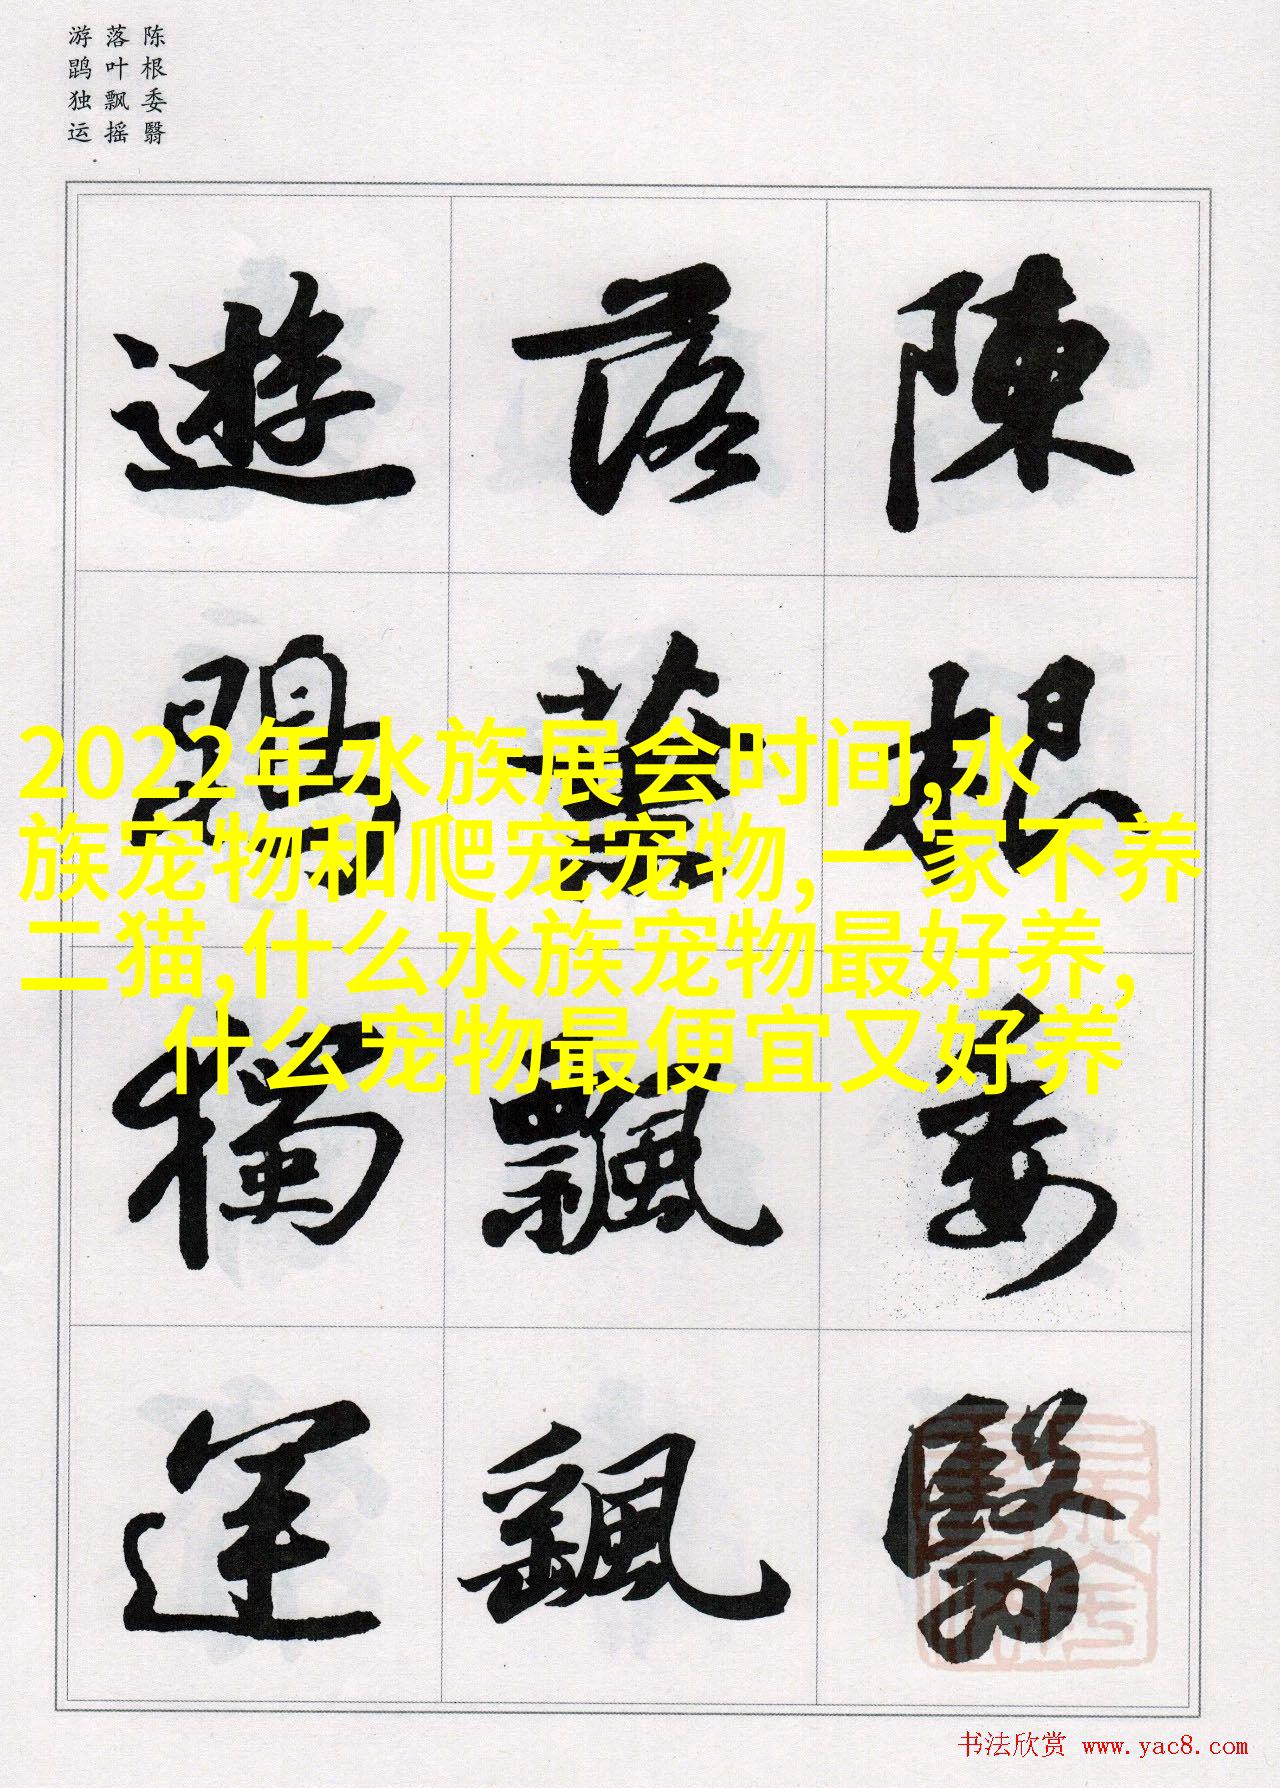 陈根委翳
落叶飘摇
游鹍独运
陳根委翳
落葉飄飖
遊鵾獨運
2022年水族展会时间,水
族宠物和爬宠宠物,一家不养
二猫,什么水族宠物最好养,
什么宠物最便宜又好养
书法欣赏 www.yac8.com